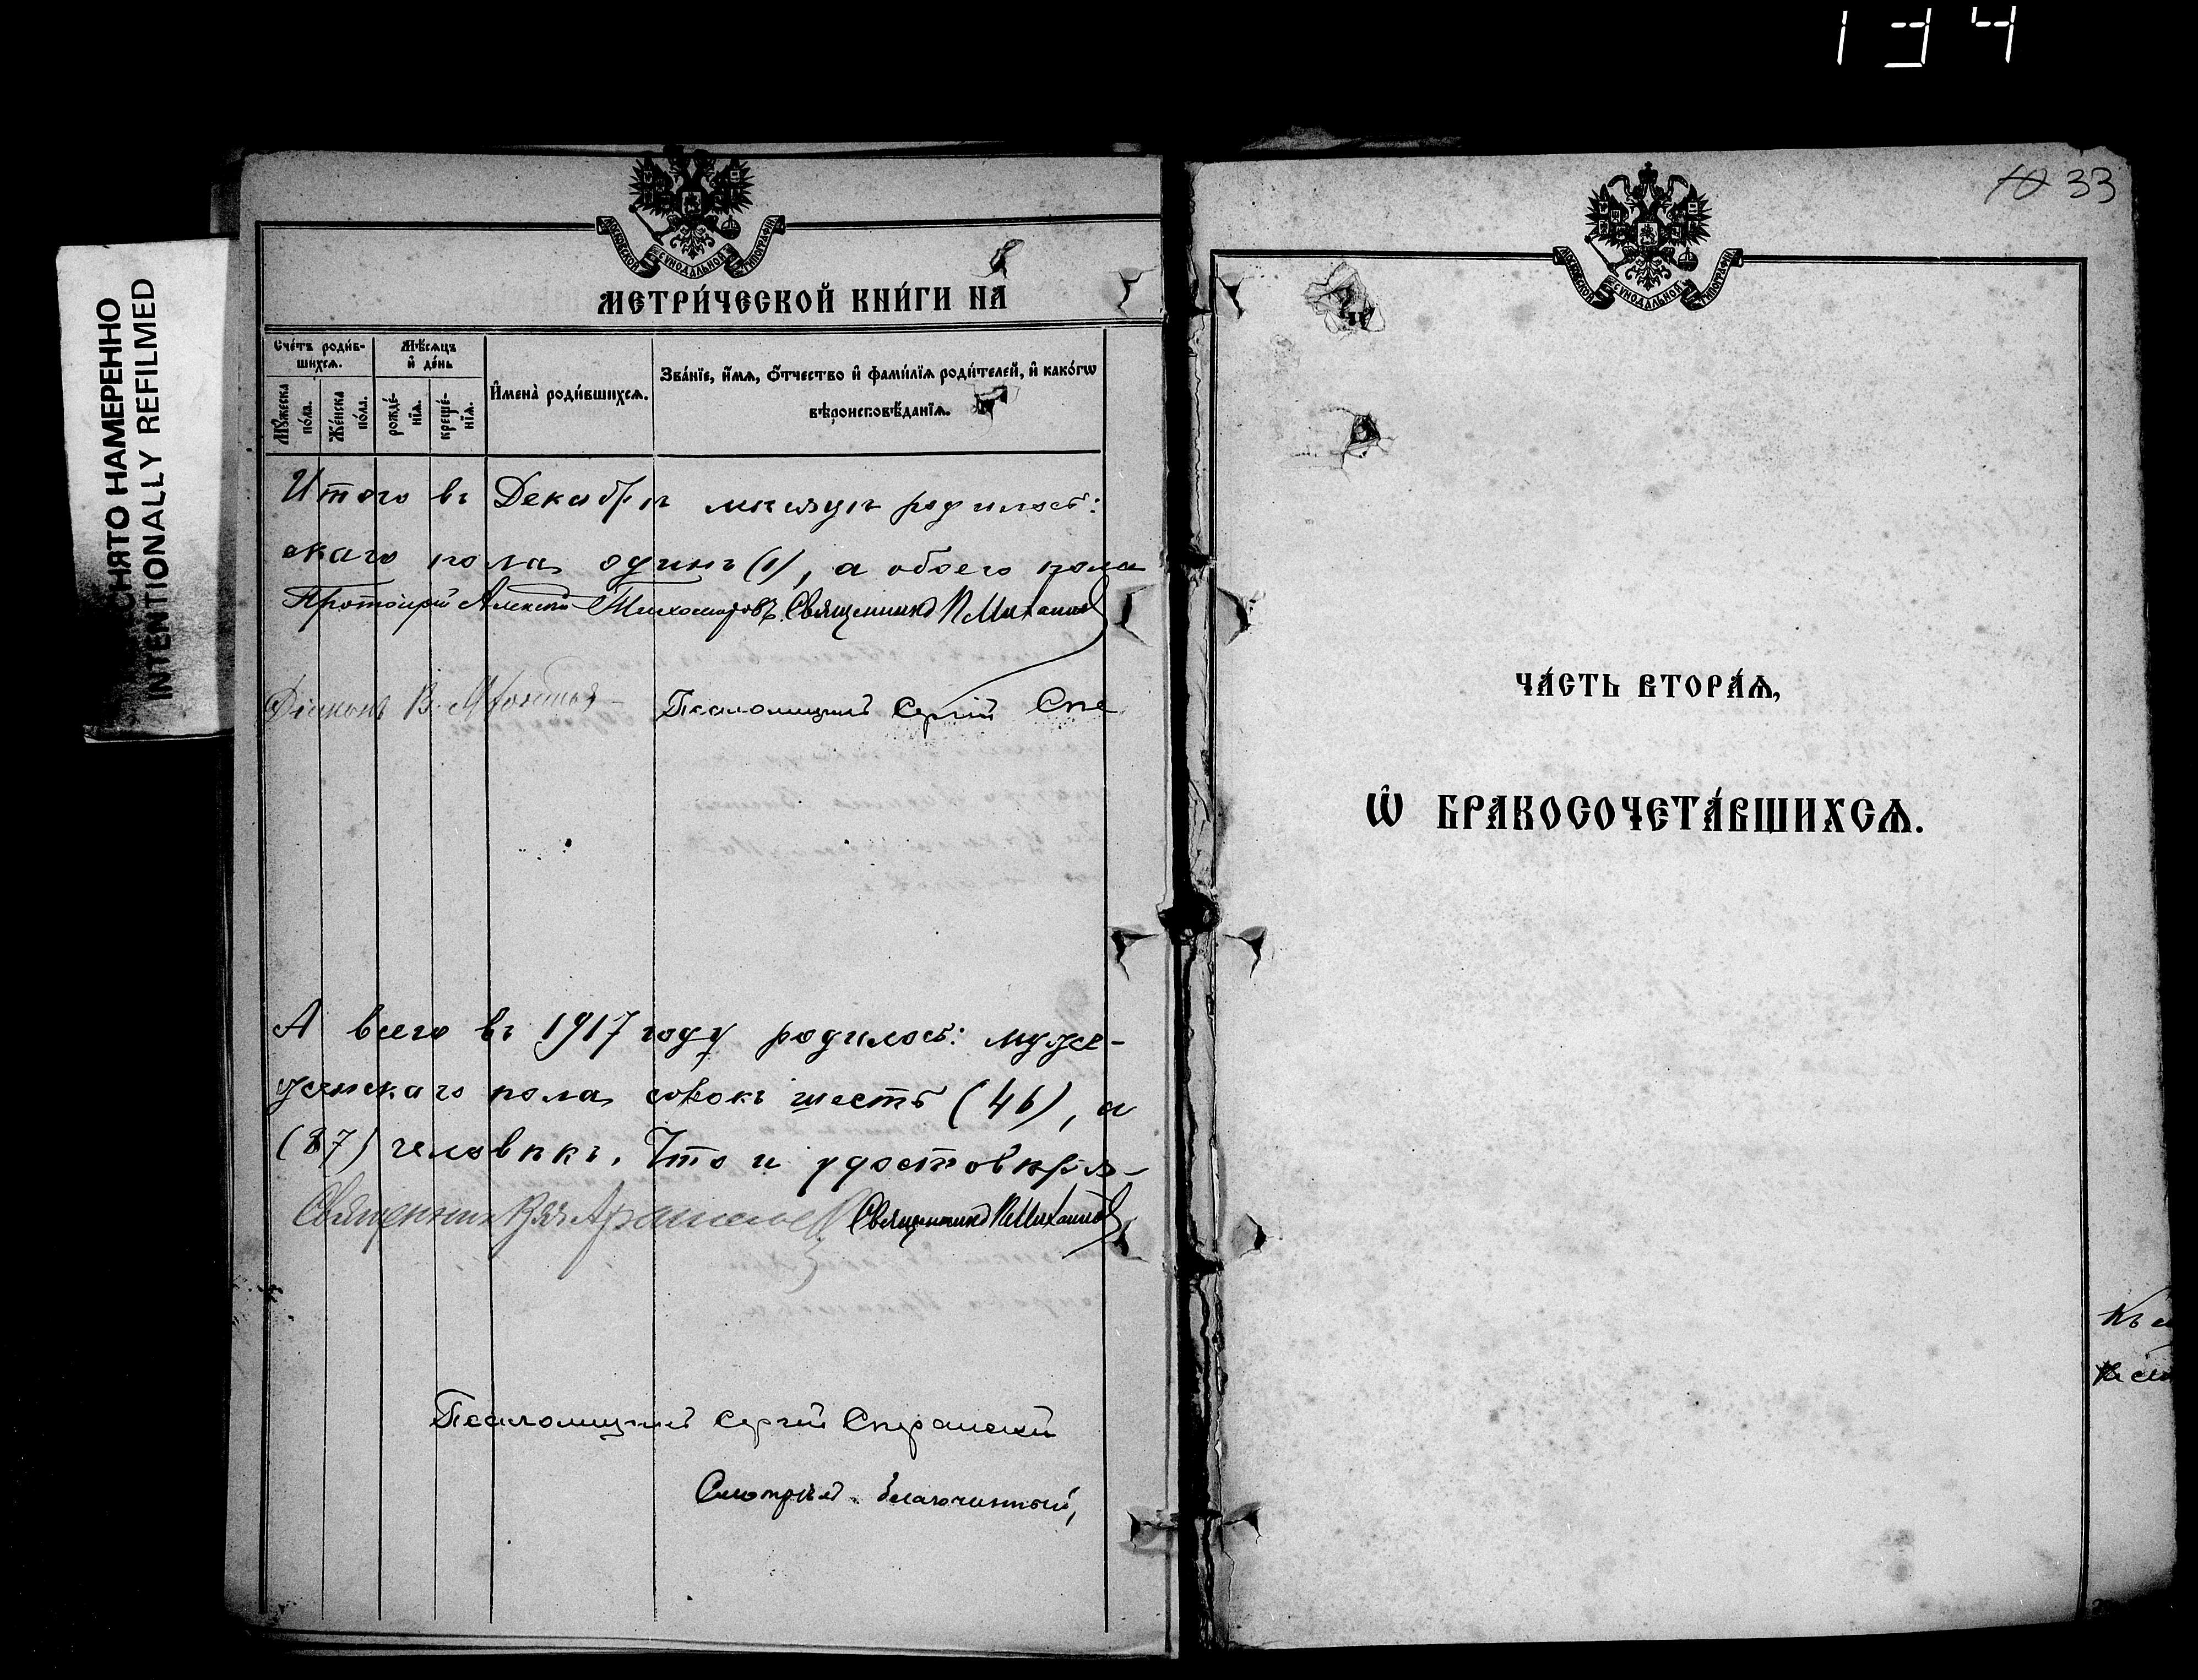 134
СНЯТО НАМЕРЕННО
INTENTIONALLY REFILMED
МОСКОВСКОЙ СѴНОДАЛЬНОЙ ТИПОГРАФІИ
МЕТРИ́ЧЕСКОЙ КНИ́ГИ НА
Сче́тъ роди́в-
шихсѧ.
Мѣ́сѧцъ
и҆ де́нь
Мꙋ́жеска
по́ла.
Же́нска
по́ла.
рожде́-
нїѧ.
креще́-
нїѧ.
И҆мена̀ роди́вшихсѧ.
Зва́нїе, и҆́мѧ, ѻ҆́тчество и҆ фами́лїѧ роди́телей, и҆ како́гѡ
вѣроисповѣ́данїѧ.
Итого въ Декабрѣ мѣсяцѣ родилось:
скаго пола одинъ (1), а обоего пола
Протоіерей Алексій Тихомировъ. Священникъ П. Михайловъ
Діаконъ В.
Псаломщикъ Сергій Спе
А всего въ 1917 году родилось: муже-
женскаго пола сорокъ шесть (46), а
(87) человѣкъ. Что и удостовѣря-
Священникъ Священникъ П. Михайловъ
Псаломщикъ Сергій Сперанскій
Смотрѣлъ благочинный,
33
МОСКОВСКОЙ СѴНОДАЛЬНОЙ ТИПОГРАФІИ
ЧА́СТЬ ВТОРА́Ѧ,
Ѡ҆ БРАКОСОЧЕТА́ВШИХСѦ.